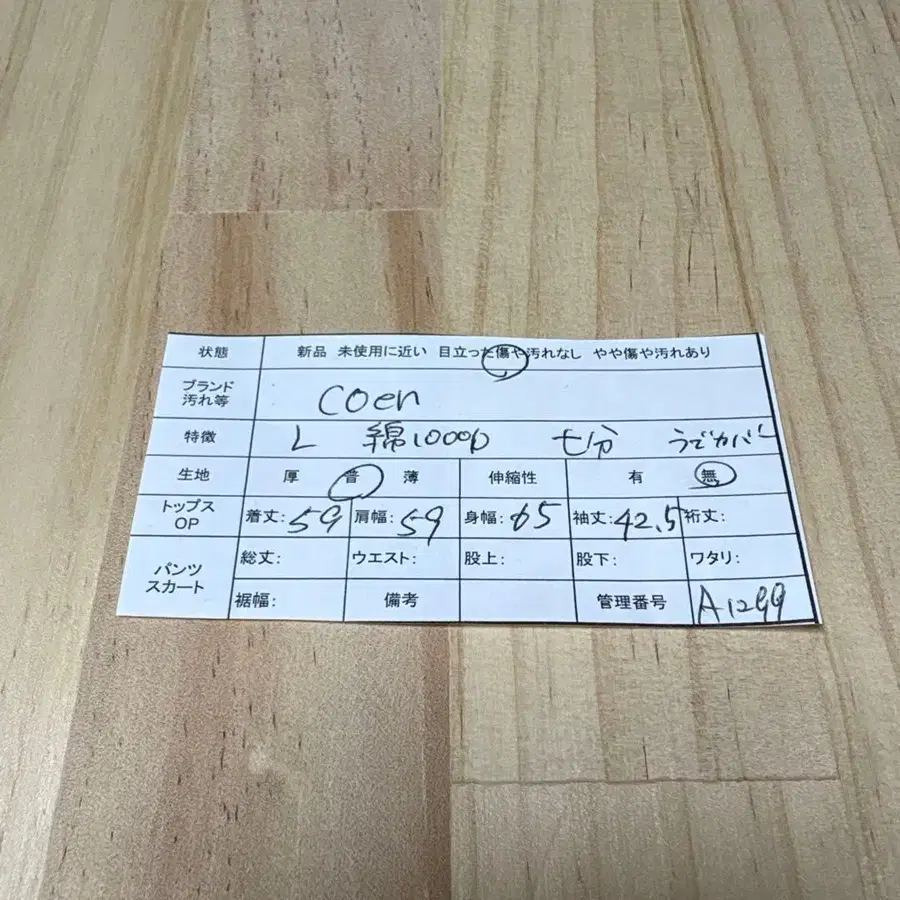 状態 新品 未使用に近い 目立った傷や汚れなし やや傷や汚れあり
ブランド
汚れ等 coen
特徴 L 綿100% 七分
生地 厚 普 薄 伸縮性 有 無
トップス
OP 着丈:59 肩幅:59 身幅:65 袖丈:42.5 裄丈:
パンツ
スカート 総丈: ウエスト: 股上: 股下: ワタリ:
裾幅: 備考 管理番号 A1299